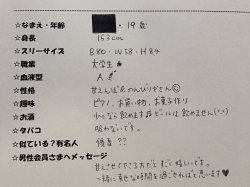 ☆なまえ・年齢 ・19歳
☆身長 153cm
☆スリーサイズ B80・W58・H84
☆職業 大学生
☆血液型 A
☆性格 甘えんぼ&のんびりやさん
☆趣味 ピアノ、お買い物、お菓子作り
☆お酒 少しなら飲めます ビールは飲めません(--)
☆タバコ 吸わないです。
☆似ている?有名人 ??
☆男性会員さまへメッセージ
甘えさせてくださる方だと嬉しいです。
一緒に幸せな時間を過ごせればと思います♥